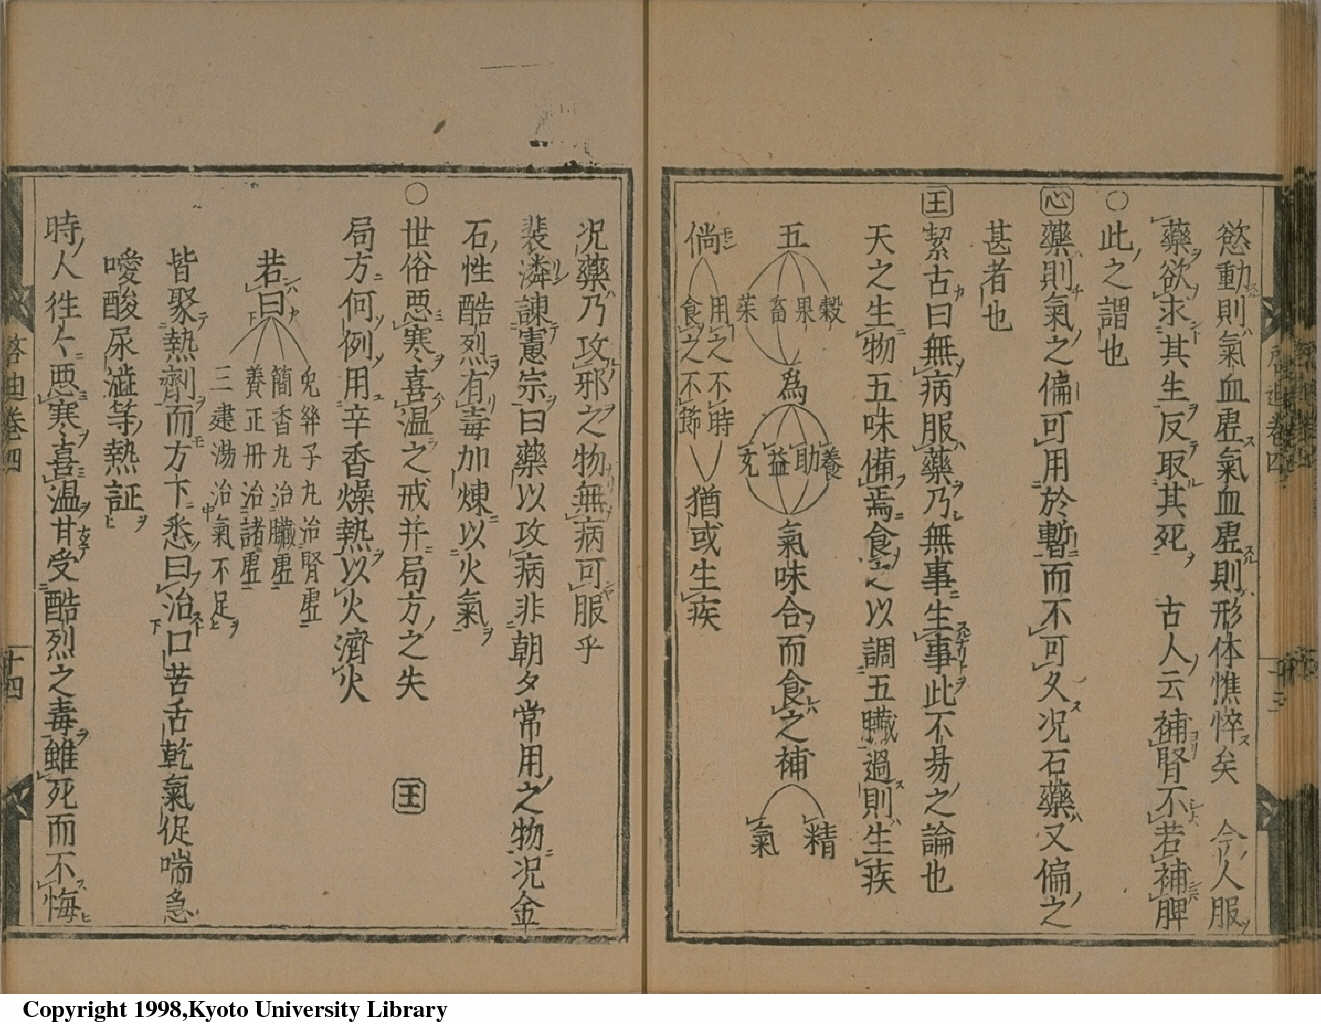 慾動則氣血虛氣血虛則形体憔悴矣 今人服
藥欲求其生反取其死 古人云補腎不若補脾
○此之謂也
心 藥則氣之偏可用於暫而不可久況石藥又偏之
甚者也
王 絜古曰無病服藥乃無事生事此不易之論也
天之生物五味備焉食之以調五臟過則生疾
五 穀 果 畜 菜 為 養 助 益 充 氣味合而食之補 精 氣
倘 用之不時 食之不節 猶或生疾
況藥乃攻邪之物無病可服乎
裴潾諫憲宗曰藥以攻病非朝夕常用之物況金
石性酷烈有毒加煉以火氣
○世俗惡寒喜温之戒并局方之失 王
局方何例用辛香燥熱以火濟火
若曰
安腎丸治腎虛
簡香丸治臟虛
養正丹治諸虛
三建湯治氣不足
皆聚熱劑而方下悉曰治口苦舌乾氣促喘急
噯酸尿澁等熱証
時人徃々惡寒喜温甘受酷烈之毒雖死而不悔
啓迪卷四
十四
Copyright 1998,Kyoto University Library